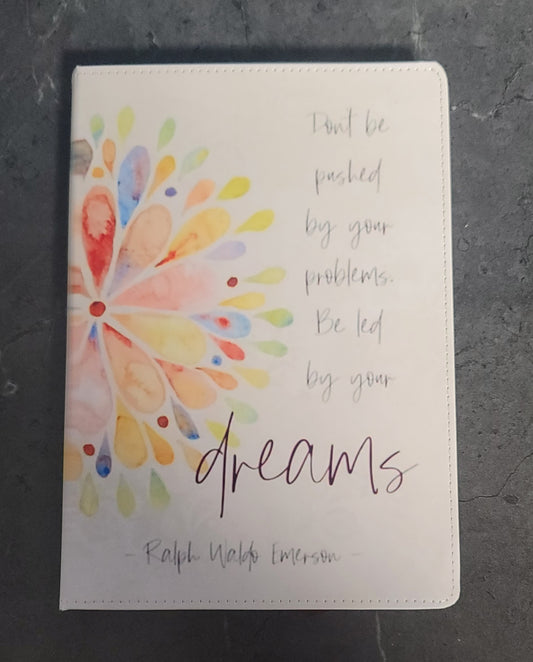 Don't be
pushed
by your
problems.
Be led
by your
dreams
- Ralph Waldo Emerson -